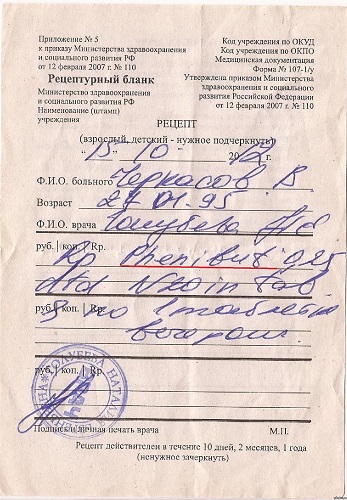 Приложение № 5
к приказу Министерства здравоохранения
и социального развития РФ
от 12 февраля 2007 г. № 110
Рецептурный бланк
Министерство здравоохранения
и социального развития РФ
Наименование (штамп)
учреждения
Код учреждения по ОКУД
Код учреждения по ОКПО
Медицинская документация
Форма № 107-1/у
Утверждена приказом Министерства
здравоохранения и социального
развития Российской Федерации
от 12 февраля 2007 г. № 110
РЕЦЕПТ
(взрослый, детский - нужное подчеркнуть)
"15" 10 2012 г.
Ф.И.О. больного Черкасов В
Возраст 27 01-95
Ф.И.О. врача Голубева
руб. | коп. | Rp.
Rp Phenibut 0,25
dtd N20 in tab
руб. | коп. | Rp.
S по 1 таблетке
вечером
руб. | коп. | Rp.
ГОЛУБЕВА НАТАЛЬЯ
врач
Подпись и личная печать врача М.П.
Рецепт действителен в течение 10 дней, 2 месяцев, 1 года
(ненужное зачеркнуть)